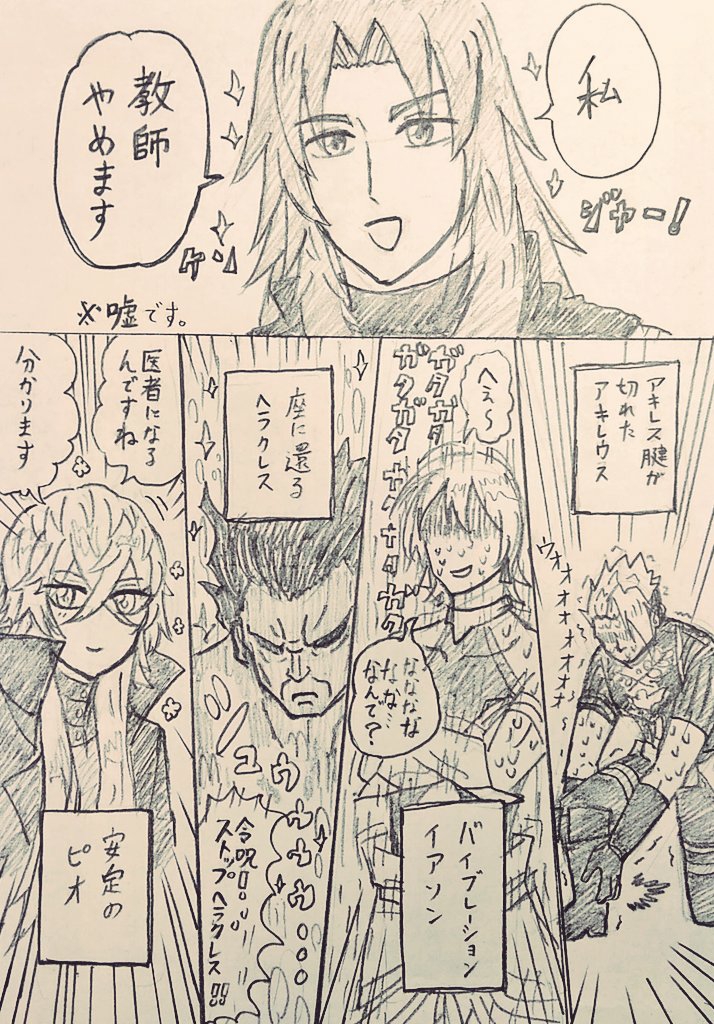 私
ジャー！
教師
やめます
ケン
※嘘です。
アキレス腱が
切れた
アキレウス
ウォオオオオオオオ〜
へぇ〜
ガタガタ
ガタガタ
ガタガタガタガタ
ななななな
なな…
なんで？
バイブレーション
イアソン
座に還る
ヘラクレス
シュウ
ウウウ…
令呪!!
ストップヘラクレス!!
医者になる
んですね
分かります
安定の
ピオ